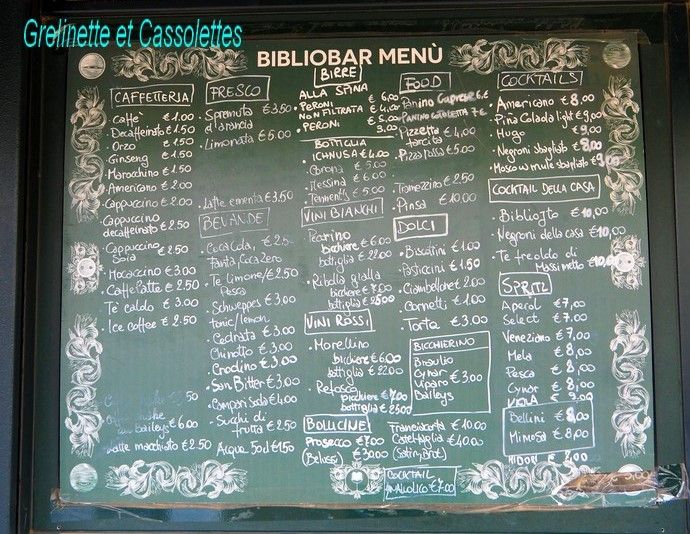 Grelinette et Cassolettes
BIBLIOBAR MENÙ
CAFFETTERIA
Caffè €1.00
Decaffeinato €1.50
Orzo €1.50
Ginseng €1.50
Marocchino €1.50
Americano €2.00
Cappuccino €2.00
Cappuccino
decaffeinato €2.50
Cappuccino €2.50
Soia
Mocaccino €3.00
Caffe Latte €2.50
Te' caldo €3.00
Ice coffee €2.50
Baileys €6.00
Latte macchiato €2.50
FRESCO
Spremuta €3.50
d'arancia
Limonata €5.00
Latte e menta €3.50
BEVANDE
Coca Cola, €2.50
Fanta, Coca Zero
Te limone/ €2.50
Pesca
Schweppes €3.00
tonic/lemon
Cedrata €3.00
Chinotto €3.00
Crodino €3.00
San Bitter €3.00
Campari soda €4.00
Succhi di
frutta €2.50
Acqua 50cl €1.50
BIRRE
ALLA SPINA
PERONI € 6,00
NON FILTRATA € 4,00
PERONI € 5.00
3.00
BOTTIGLIA
ICHNUSA €4.00
Corona €5.00
Messina €6.00
Tennent's €5.00
VINI BIANCHI
Pecorino
bicchiere €6.00
bottiglia €22.00
Ribolla gialla
bicchiere €7.00
bottiglia €25.00
VINI ROSSI
Morellino
bicchiere €6.00
bottiglia €22.00
Refosco
bicchiere €7.00
bottiglia €25.00
BOLLICINE
Prosecco €7.00
(Belussi) €30.00
Franciacorta €10.00
Castelfaglia €40.00
(Satin, Brut)
COCKTAIL
ANALCOLICO €7.00
FOOD
Panino Caprese 6 €
PANINO COTOLETTA 7€
Pizzetta €4,00
farcita
Pizza rossa €5.00
Tramezzino €2.50
Pinsa €10.00
DOLCI
Biscottini €1.00
Pasticcini €1.50
Ciambellone €2.00
Cornetti €1.00
Torta €3.00
BICCHIERINO
Braulio
Cynar
Liparo €3.00
Baileys
COCKTAILS
Americano €8,00
Piña Colada light €9,00
Hugo €9,00
Negroni sbagliato €8,00
Moscow mule sbagliato €9,00
COCKTAIL DELLA CASA
Bibliojto €10,00
Negroni della casa €10,00
Te freddo di
Massimetto €10,00
SPRITZ
Aperol €7,00
Select €7.00
Veneziano €7,00
Mela €8,00
Pesca €8,00
Cynar €8,00
VIOLA
Bellini €8,00
Mimosa €8,00
MIDORI